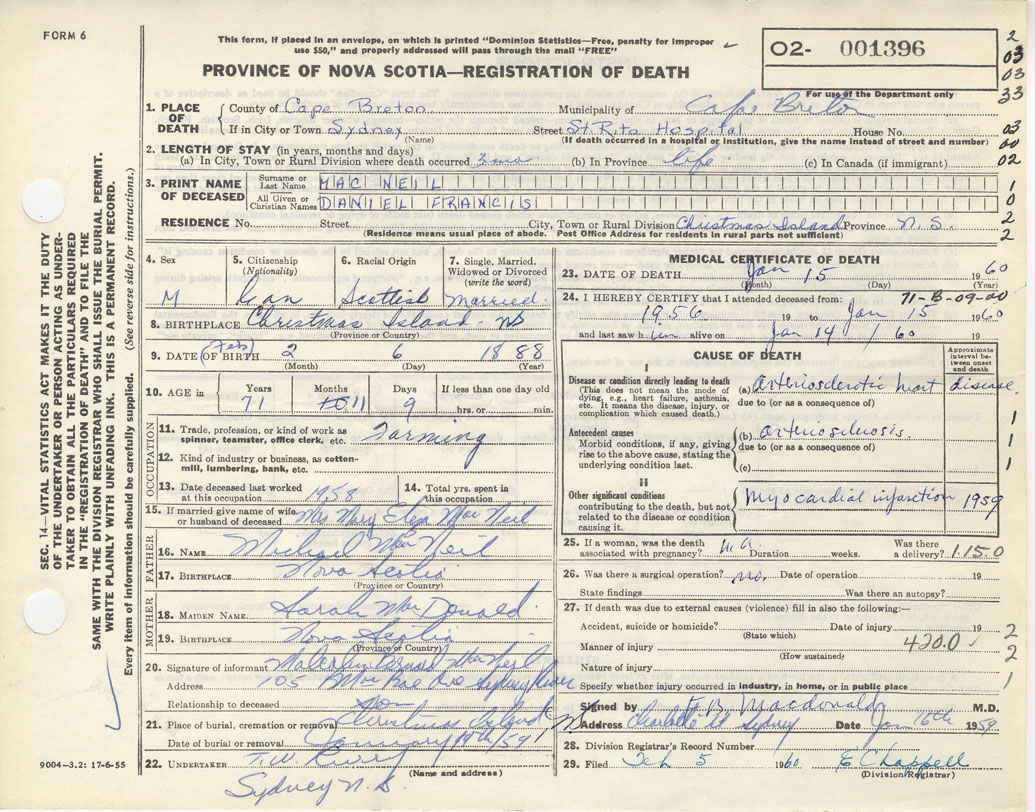 FORM 6
This form, if placed in an envelope, on which is printed "Dominion Statistics—Free, penalty for improper
use $50," and properly addressed will pass through the mail "FREE"
PROVINCE OF NOVA SCOTIA—REGISTRATION OF DEATH
O2- 001396
For use of the Department only
2
03
03
33
1. PLACE OF DEATH
County of Cape Breton Municipality of Cape Breton
If in City or Town Sydney Street St. Rita Hospital House No.
(Name) (If death occurred in a hospital or Institution, give the name instead of street and number)
03
00
02
2. LENGTH OF STAY (in years, months and days)
(a) In City, Town or Rural Division where death occurred 3 mo (b) In Province life (c) In Canada (if immigrant)
3. PRINT NAME OF DECEASED
Surname or Last Name MAC NEIL
All Given or Christian Names DANIEL FRANCIS
1
0
2
2
RESIDENCE No. Street City, Town or Rural Division Christmas Island Province N. S.
(Residence means usual place of abode. Post Office Address for residents in rural parts not sufficient)
4. Sex M
5. Citizenship (Nationality)
6. Racial Origin Scottish
7. Single, Married, Widowed or Divorced (write the word) Married
8. BIRTHPLACE Christmas Island - NS
(Province or Country)
9. DATE OF BIRTH (Feb) 2 6 1888
(Month) (Day) (Year)
10. AGE in Years 71 Months 11 Days 9 If less than one day old hrs. or min.
OCCUPATION
11. Trade, profession, or kind of work as spinner, teamster, office clerk, etc. Farming
12. Kind of industry or business, as cotton-mill, lumbering, bank, etc.
13. Date deceased last worked at this occupation 1958
14. Total yrs. spent in this occupation
15. If married give name of wife or husband of deceased Mrs Mary Eliza MacNeil
FATHER
16. NAME Michael MacNeil
17. BIRTHPLACE Nova Scotia
(Province or Country)
MOTHER
18. MAIDEN NAME Sarah MacDonald
19. BIRTHPLACE Nova Scotia
(Province or Country)
20. Signature of informant Malcolm Bernard MacNeil
Address 105 Ave Sydney River
Relationship to deceased Son
21. Place of burial, cremation or removal Christmas Island
Date of burial or removal January /59
22. UNDERTAKER T. W. Curry
(Name and address)
Sydney N. S.
MEDICAL CERTIFICATE OF DEATH
23. DATE OF DEATH Jan 15 1960
(Month) (Day) (Year)
24. I HEREBY CERTIFY that I attended deceased from: 71-B-09-00
1956 19 to Jan 15 1960
and last saw him alive on Jan 14 / 60 19
CAUSE OF DEATH
Approximate interval between onset and death
I
Disease or condition directly leading to death
(This does not mean the mode of dying, e.g., heart failure, asthenia, etc. It means the disease, injury, or complication which caused death.)
(a) Arteriosclerotic heart disease
due to (or as a consequence of)
Antecedent causes
Morbid conditions, if any, giving rise to the above cause, stating the underlying condition last.
(b) arteriosclerosis.
due to (or as a consequence of)
(c)
1
1
1
II
Other significant conditions
contributing to the death, but not related to the disease or condition causing it.
Myocardial infarction 1959
25. If a woman, was the death associated with pregnancy? Duration weeks. Was there a delivery? 1.15.0
26. Was there a surgical operation? no. Date of operation 19
State findings Was there an autopsy?
27. If death was due to external causes (violence) fill in also the following:—
Accident, suicide or homicide? Date of injury 19
(State which)
Manner of injury 420.0
(How sustained)
Nature of injury
2
2
1
Specify whether injury occurred in industry, in home, or in public place
Signed by F. B. Macdonald M.D.
Address Charlotte St Sydney Date Jan 16th 1959
28. Division Registrar's Record Number
29. Filed Feb 5 1960 E Chappell
(Division Registrar)
9004—3.2: 17-6-55
SEC. 14—VITAL STATISTICS ACT MAKES IT THE DUTY
OF THE UNDERTAKER OR PERSON ACTING AS UNDER-
TAKER TO OBTAIN ALL THE PARTICULARS REQUIRED
IN THE "REGISTRATION OF DEATH" AND TO FILE THE
SAME WITH THE DIVISION REGISTRAR WHO SHALL ISSUE THE BURIAL PERMIT.
WRITE PLAINLY WITH UNFADING INK. THIS IS A PERMANENT RECORD.
Every item of information should be carefully supplied. (See reverse side for instructions.)